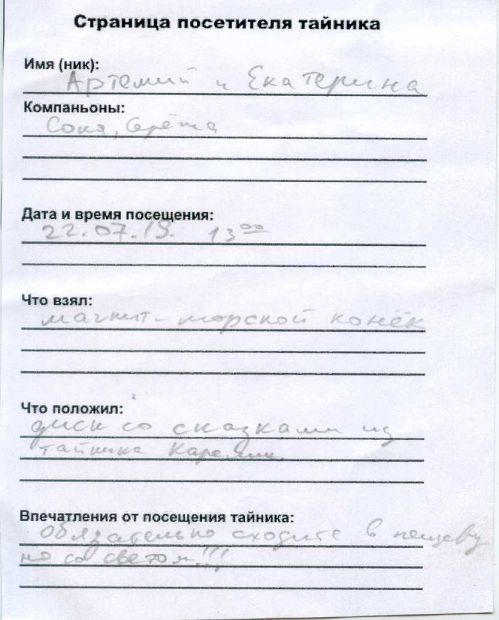 Страница посетителя тайника
Имя (ник):
Артемий и Екатерина
Компаньоны:
Соня, Серёжа
Дата и время посещения:
22.07.19. 13⁰⁰
Что взял:
магнит-морской конёк
Что положил:
диск со сказками из
тайника Карелии
Впечатления от посещения тайника:
Обязательно сходите в пещеру
но со светом!!!